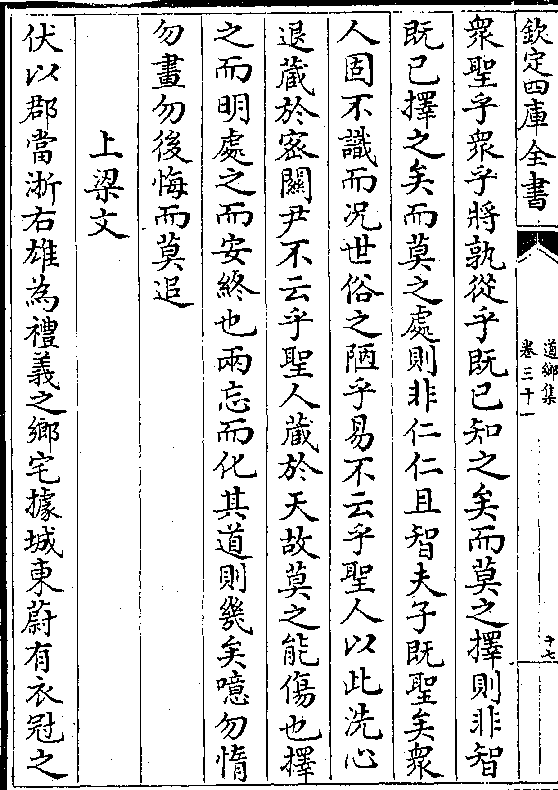 欽定四庫全書
道鄉集
卷三十一
十七
衆聖乎衆乎將孰從乎既已知之矣而莫之擇則非智
既已擇之矣而莫之處則非仁仁且智夫子既聖矣衆
人固不識而况世俗之陋乎易不云乎聖人以此洗心
退藏於密關尹不云乎聖人藏於天故莫之能傷也擇
之而明處之而安終也兩忘而化其道則幾矣噫勿惰
勿畫勿後悔而莫追
上梁文
伏以郡當浙右雄為禮義之鄉宅據城東蔚有衣冠之